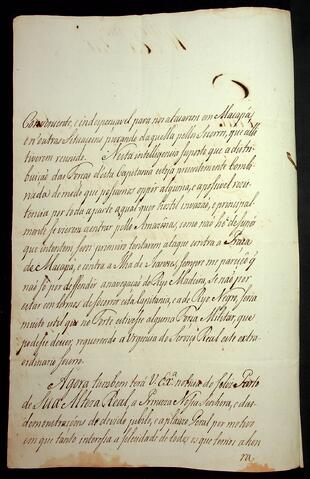 Conveniente, e indispensavel para nos salvarmos em Macapá,
e n'outras Situaçoens por onde daquella pello Serem, que alli
tiverem reunido. Nesta intelligencia suposto que a destri-
buição das Forças desta Capitania esteja prudentemente Combi-
nada de modo que possamos oppôr alguma, e apossivel rezis-
tencia por toda a parte aqual quer hostil invazão, e principal-
mente se vierem aentrar pello Amazonas, como não he de supôr
que intentem sem primeiro tentarem ataque contra a Praça
de Macapá, e contra a Ilha de Joannes, sempre me pareceo q'
não só por defender a navegação do Rio Madeira, se não por
estar em termos de soccorrer esta Capitania, e a do Rio Negro, seria
muito util que no Forte estivesse alguma Força Militar, que
podesse descer, requerendo a Urgencia do Serviço Real este extra-
ordinario socorro.
Agora tambem terá V. Exª noticia do feliz Parto
de Sua Alteza Real, a Princeza Nossa Senhora, e das
demonstraçoens do devido jubilo, e aplauzo Geral por motivo
em que tanto interessa a felicidade de todos os que temos a hon
ra